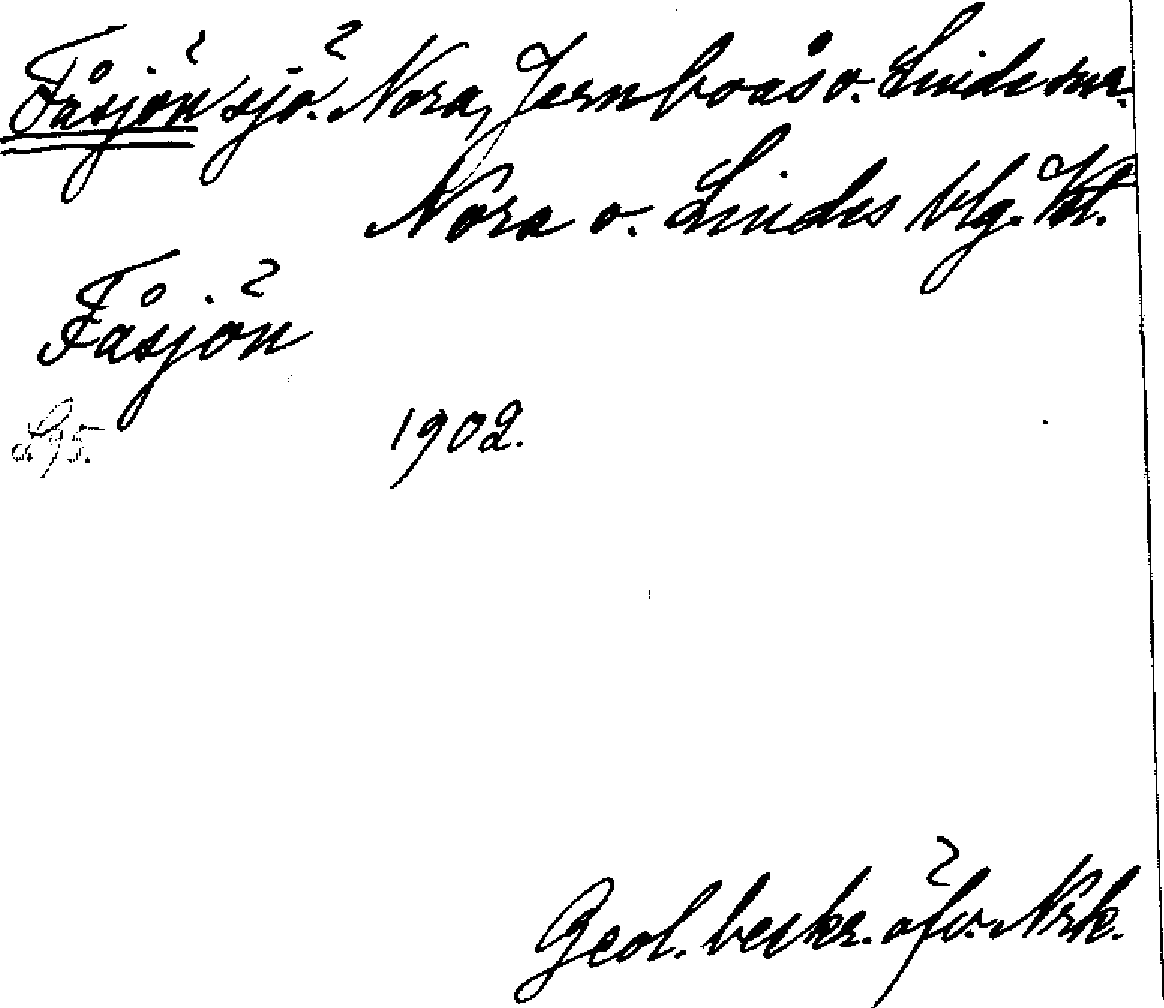 Fåsjön sjö. Nora, Jernboås o. Lindes snr.
Nora o. Lindes blg. Vstl.
Fåsjön
S 95. 1902.
Geol. beskr. öfv. Nrk.